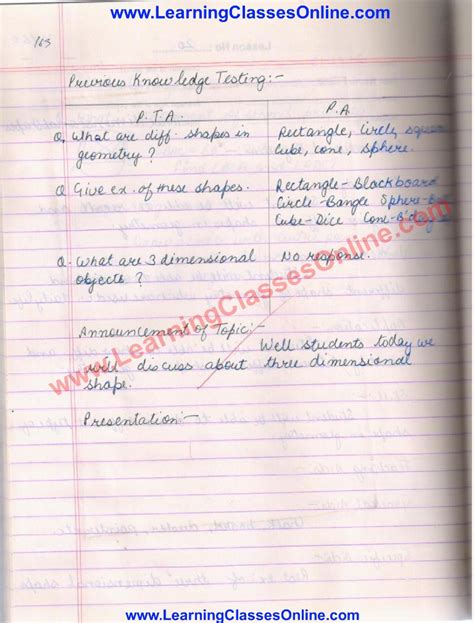 www.LearningClassesOnline.com
163
Previous Knowledge Testing:-
P.T.A. P.A.
Q. What are diff. shapes in Rectangle, Circle, square
geometry? Cube, cone, sphere.
Q Give ex. of these shapes. Rectangle-Blackboard
Circle-Bangle Sphere-
Cube-Dice Cone-
Q. What are 3 dimensional No response.
objects?
Announcement of Topic:-
Well students today we
will discuss about three dimensional
shape.
Presentation:-
www.LearningClassesOnline.com
www.LearningClassesOnline.com